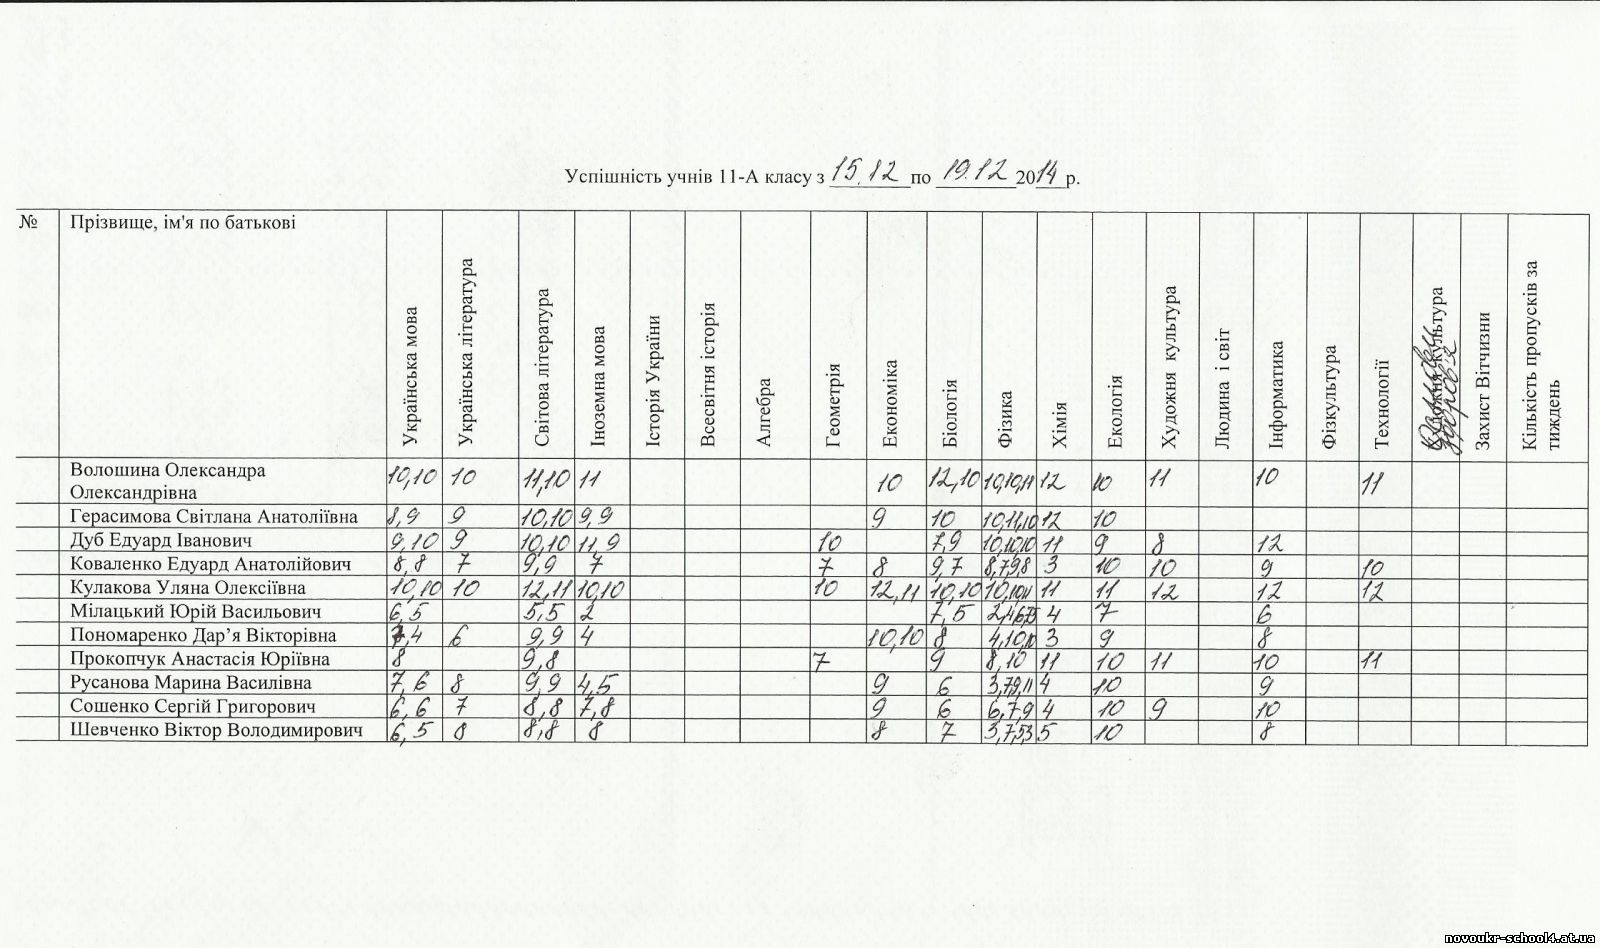 Успішність учнів 11-А класу з 15.12 по 19.12 2014 р.
№ Прізвище, ім'я по батькові Українська мова Українська література Світова література Іноземна мова Історія України Всесвітня історія Алгебра Геометрія Економіка Біологія Фізика Хімія Екологія Художня культура Людина і світ Інформатика Фізкультура Технології Художня культура Захист Вітчизни Кількість пропусків за тиждень
Волошина Олександра
Олександрівна 10,10 10 11,10 11 10 12,10 10,10,11 12 10 11 10 11
Герасимова Світлана Анатоліївна 8,9 9 10,10 9,9 9 10 10,11,10 12 10
Дуб Едуард Іванович 9,10 9 10,10 11,9 10 7,9 10,10,10 11 9 8 12
Коваленко Едуард Анатолійович 8,8 7 9,9 7 7 8 9,7 8,7,9,8 3 10 10 9 10
Кулакова Уляна Олексіївна 10,10 10 12,11 10,10 10 12,11 10,10 10,10,11 11 11 12 12 12
Мілацький Юрій Васильович 6,5 5,5 2 7,5 4 7 6
Пономаренко Дар’я Вікторівна 4 6 9,9 4 10,10 8 4,10,10 3 9 8
Прокопчук Анастасія Юріївна 8 9,8 7 9 8,10 11 10 11 10 11
Русанова Марина Василівна 7,6 8 9,9 4,5 9 6 3,7,9,11 4 10 9
Сошенко Сергій Григорович 6,6 7 8,8 7,8 9 6 6,7,9 4 10 9 10
Шевченко Віктор Володимирович 6,5 8 8,8 8 8 7 3,7,5,3 5 10 8
novoukr-school4.at.ua